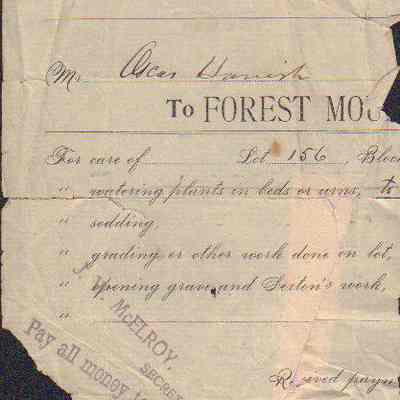 Mr Oscar
To FOREST MOU
For care of Lot 156, Block
" watering plants in beds or urns, to
" sodding,
" grading or other work done on lot,
" Opening grave and Sexton's work,
"
McELROY,
SECRE
Pay all money t
Received payme